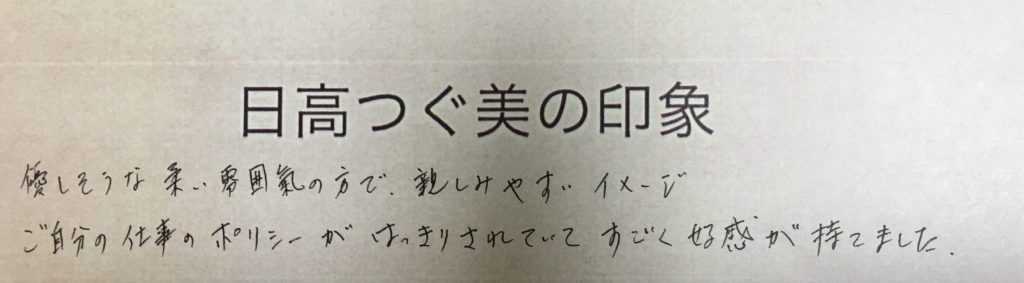 日高つぐ美の印象
優しそうな柔い雰囲氣の方で、親しみやすいイメージ
ご自分の仕事のポリシーがはっきりされていてすごく好感が持てました.